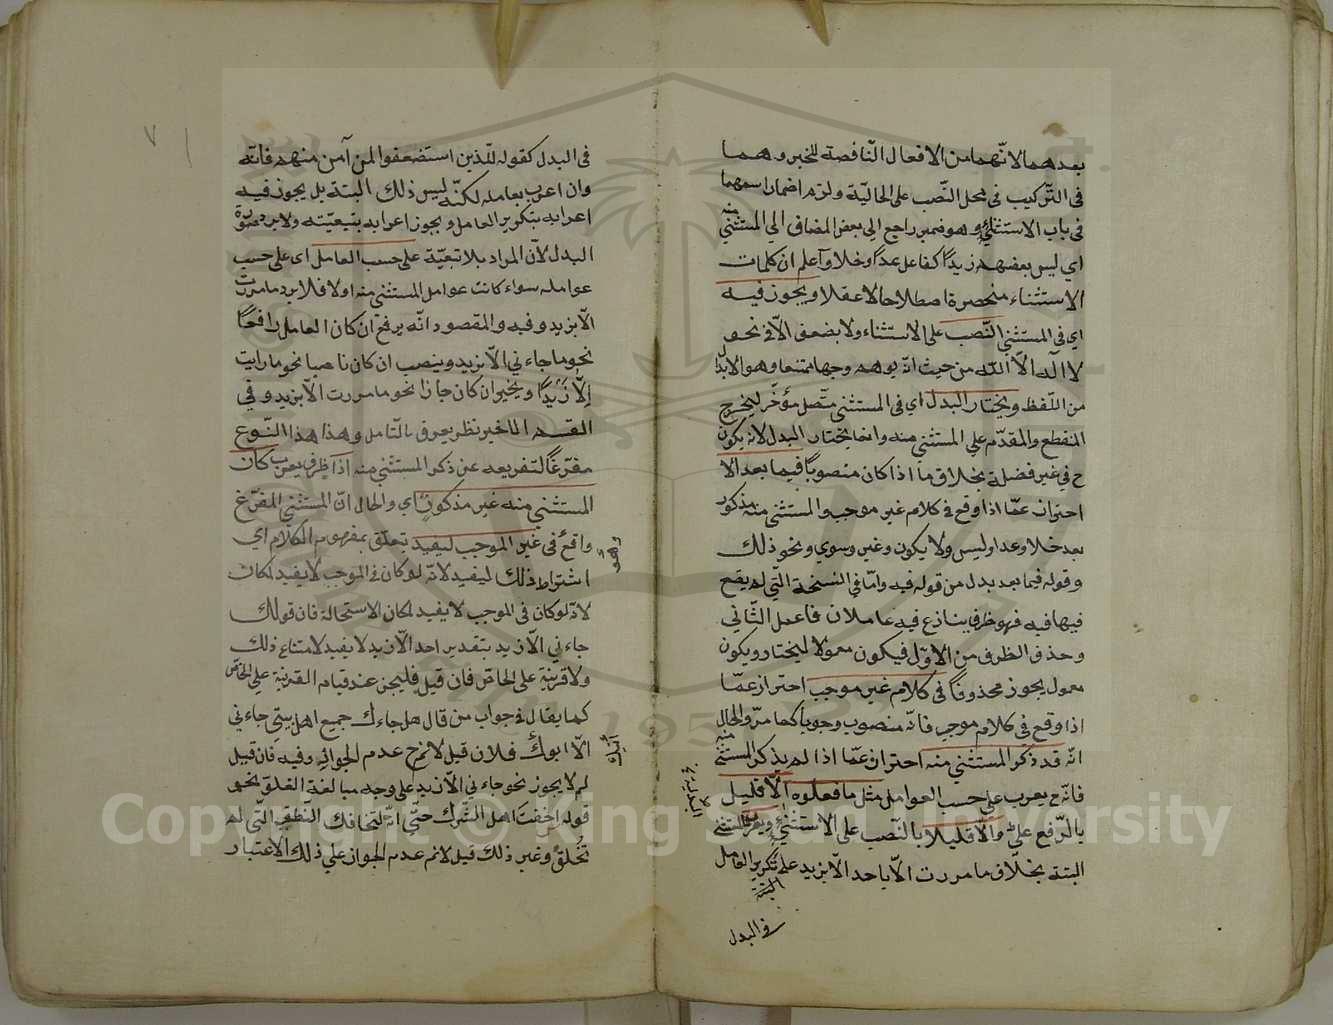 بعدهما لانهما من الافعال الناقصة للخبر وهما
فى التركيب فى محل النصب على الحالية ولزم اضمار اسمهما
فى باب الاستثناء وهو ضمير راجع الى بعض المضاف الى المستثنى منه
اى ليس بعضهم زيدًا كفاعل عدا وخلا واعلم ان كلمات
الاستثناء منحصرة اصطلاحا لا عقلا ويجوز فيه
اى فى المستثنى النصب على الاستثناء ولا يضعف الا فى نحو
لا اله الا الله من حيث انه يوهم وجها ممتنعا وهو الابدال
من اللفظ ويختار البدل اى فى المستثنى متصل مؤخر ليخرج
المنقطع والمقدم على المستثنى منه وانما يختار البدل لانه يكون
ح فى غير فضلة بخلاف ما اذا كان منصوبًا فيما بعد الا
احتراز عما اذا وقع فى كلام غير موجب والمستثنى منه مذكور
بعد خلا وعدا وليس ولا يكون وغير وسوى ونحو ذلك
وقوله فيما بعد بدل من قوله فيه واما فى النسخة التى لم يقع
فيها فيه فهو ظرف يتنازع فيه عاملان فاعمل الثانى
وحذف الظرف من الاول فيكون معمولا ليختار ويكون
معمول يجوز محذوفًا فى كلام غير موجب احتراز عما
اذا وقع فى كلام موجب فانه منصوب وجوبا كما مر والحال
انه قد ذكر المستثنى منه احتراز عما اذا لم يذكر المستثنى منه
فانه ح يعرب على حسب العوامل مثل ما فعلوه الا قليل
بالرفع على والا قليلا بالنصب على الاستثناء ويعرب المستثنى
البتة بخلاف ما مررت الا باحد الا بزيد على تكرير العامل
البتة
فى البدل
فى البدل كقوله للذين استضعفوا لمن آمن منهم فانه
وان اعرب بعامله لكنه ليس ذلك البتة بل يجوز فيه
اعرابه بتكرير العامل ويجوز اعرابه بتبعيته ولا يرد صورة
البدل لان المراد بلا تبعية على حسب العامل اى على حسب
عوامله سواء كانت عوامل المستثنى منه اولا فلا يرد ما مررت
الا بزيد وفيه والمقصود انه يرفع ان كان العامل رافعًا
نحو ما جاءنى الا زيد وينصب ان كان ناصبا نحو ما رايت
الا زيدًا ويجر ان كان جارا نحو ما مررت الا بزيد وفى
القسم الاخير نظر يعرف بالتامل وهذا هذا النوع
مفرغا لتفريعه عن ذكر المستثنى منه اذا ظرف يعرب كان
المستثنى منه غير مذكور اى والحال ان المستثنى المفرغ
واقع فى غير الموجب ليفيد تعلق بمفهوم الكلام اى
وهو
اشتراط ذلك ليفيد لانه لو كان فى الموجب لا يفيد لكان
لانه لو كان فى الموجب لا يفيد لمكان الاستحالة فان قولك
جاءنى الا زيد بتقدير احد الا زيد لا يفيد لامتناع ذلك
ولا قرينة على الخاص فان قيل فليجز عند قيام القرينة على الخاص
كما يقال فى جواب من قال هل جاءك جميع اهل بيتى جاءنى
الا ابوك فلان قيل لا نم ح عدم الجواز وفيه فان قيل
لم لا يجوز نحو جاءنى الا زيد على وجه مبالغة الغلق نحو
قوله اخفت اهل الشرك حتى انه لتخافك النطف التى لم
تخلق وغير ذلك قيل لا نم عدم الجواز على ذلك الاعتبار
Copyright © King Saud University
1957